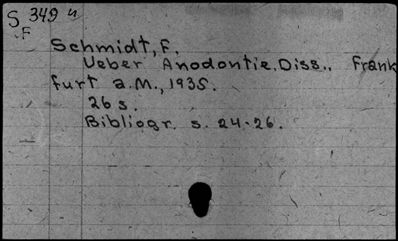 S 349 u
F
Schmidt, F.
Ueber Anodontie. Diss., Frank
furt a.M., 1935.
26 s.
Bibliogr. s. 24-26.